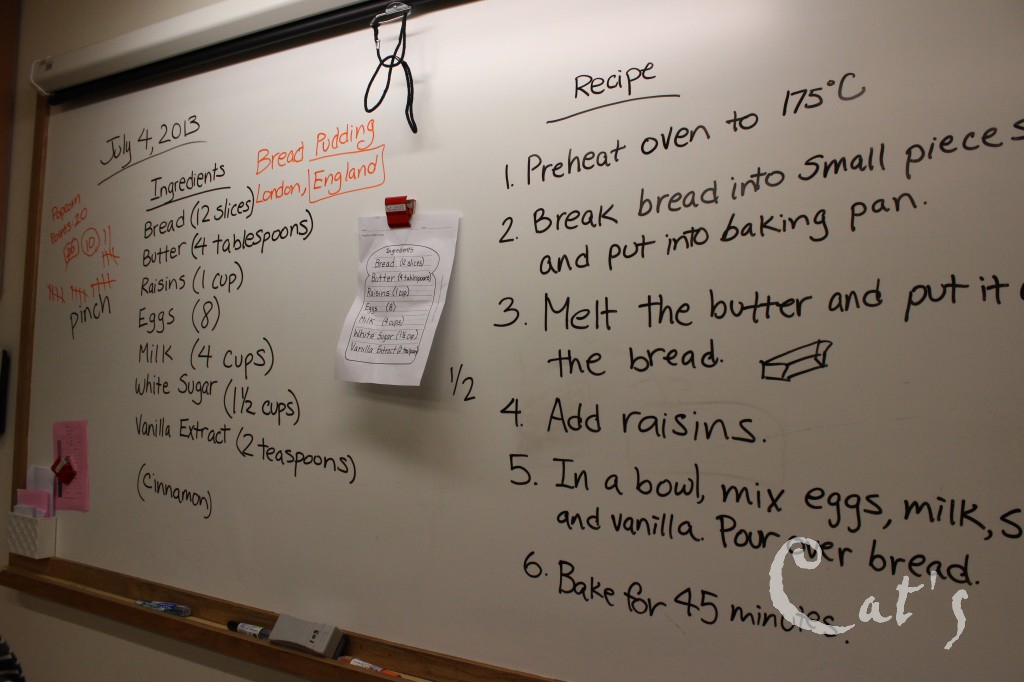 July 4, 2013
Bread Pudding
London, England
Popcorn
Points: 20
10
pinch
Ingredients
Bread (12 slices)
Butter (4 tablespoons)
Raisins (1 cup)
Eggs (8)
Milk (4 cups)
White Sugar (1½ cups)
Vanilla Extract (2 teaspoons)
(Cinnamon)
Ingredients
Bread (12 slices)
Butter (4 tablespoons)
Raisins (1 cup)
Eggs (8)
Milk (4 cups)
White Sugar (1½ cup)
Vanilla Extract (2 teaspoons)
1/2
Recipe
1. Preheat oven to 175°C
2. Break bread into small pieces
and put into baking pan.
3. Melt the butter and put it
the bread.
4. Add raisins.
5. In a bowl, mix eggs, milk, s
and vanilla. Pour over bread.
6. Bake for 45 minutes.
Cat's